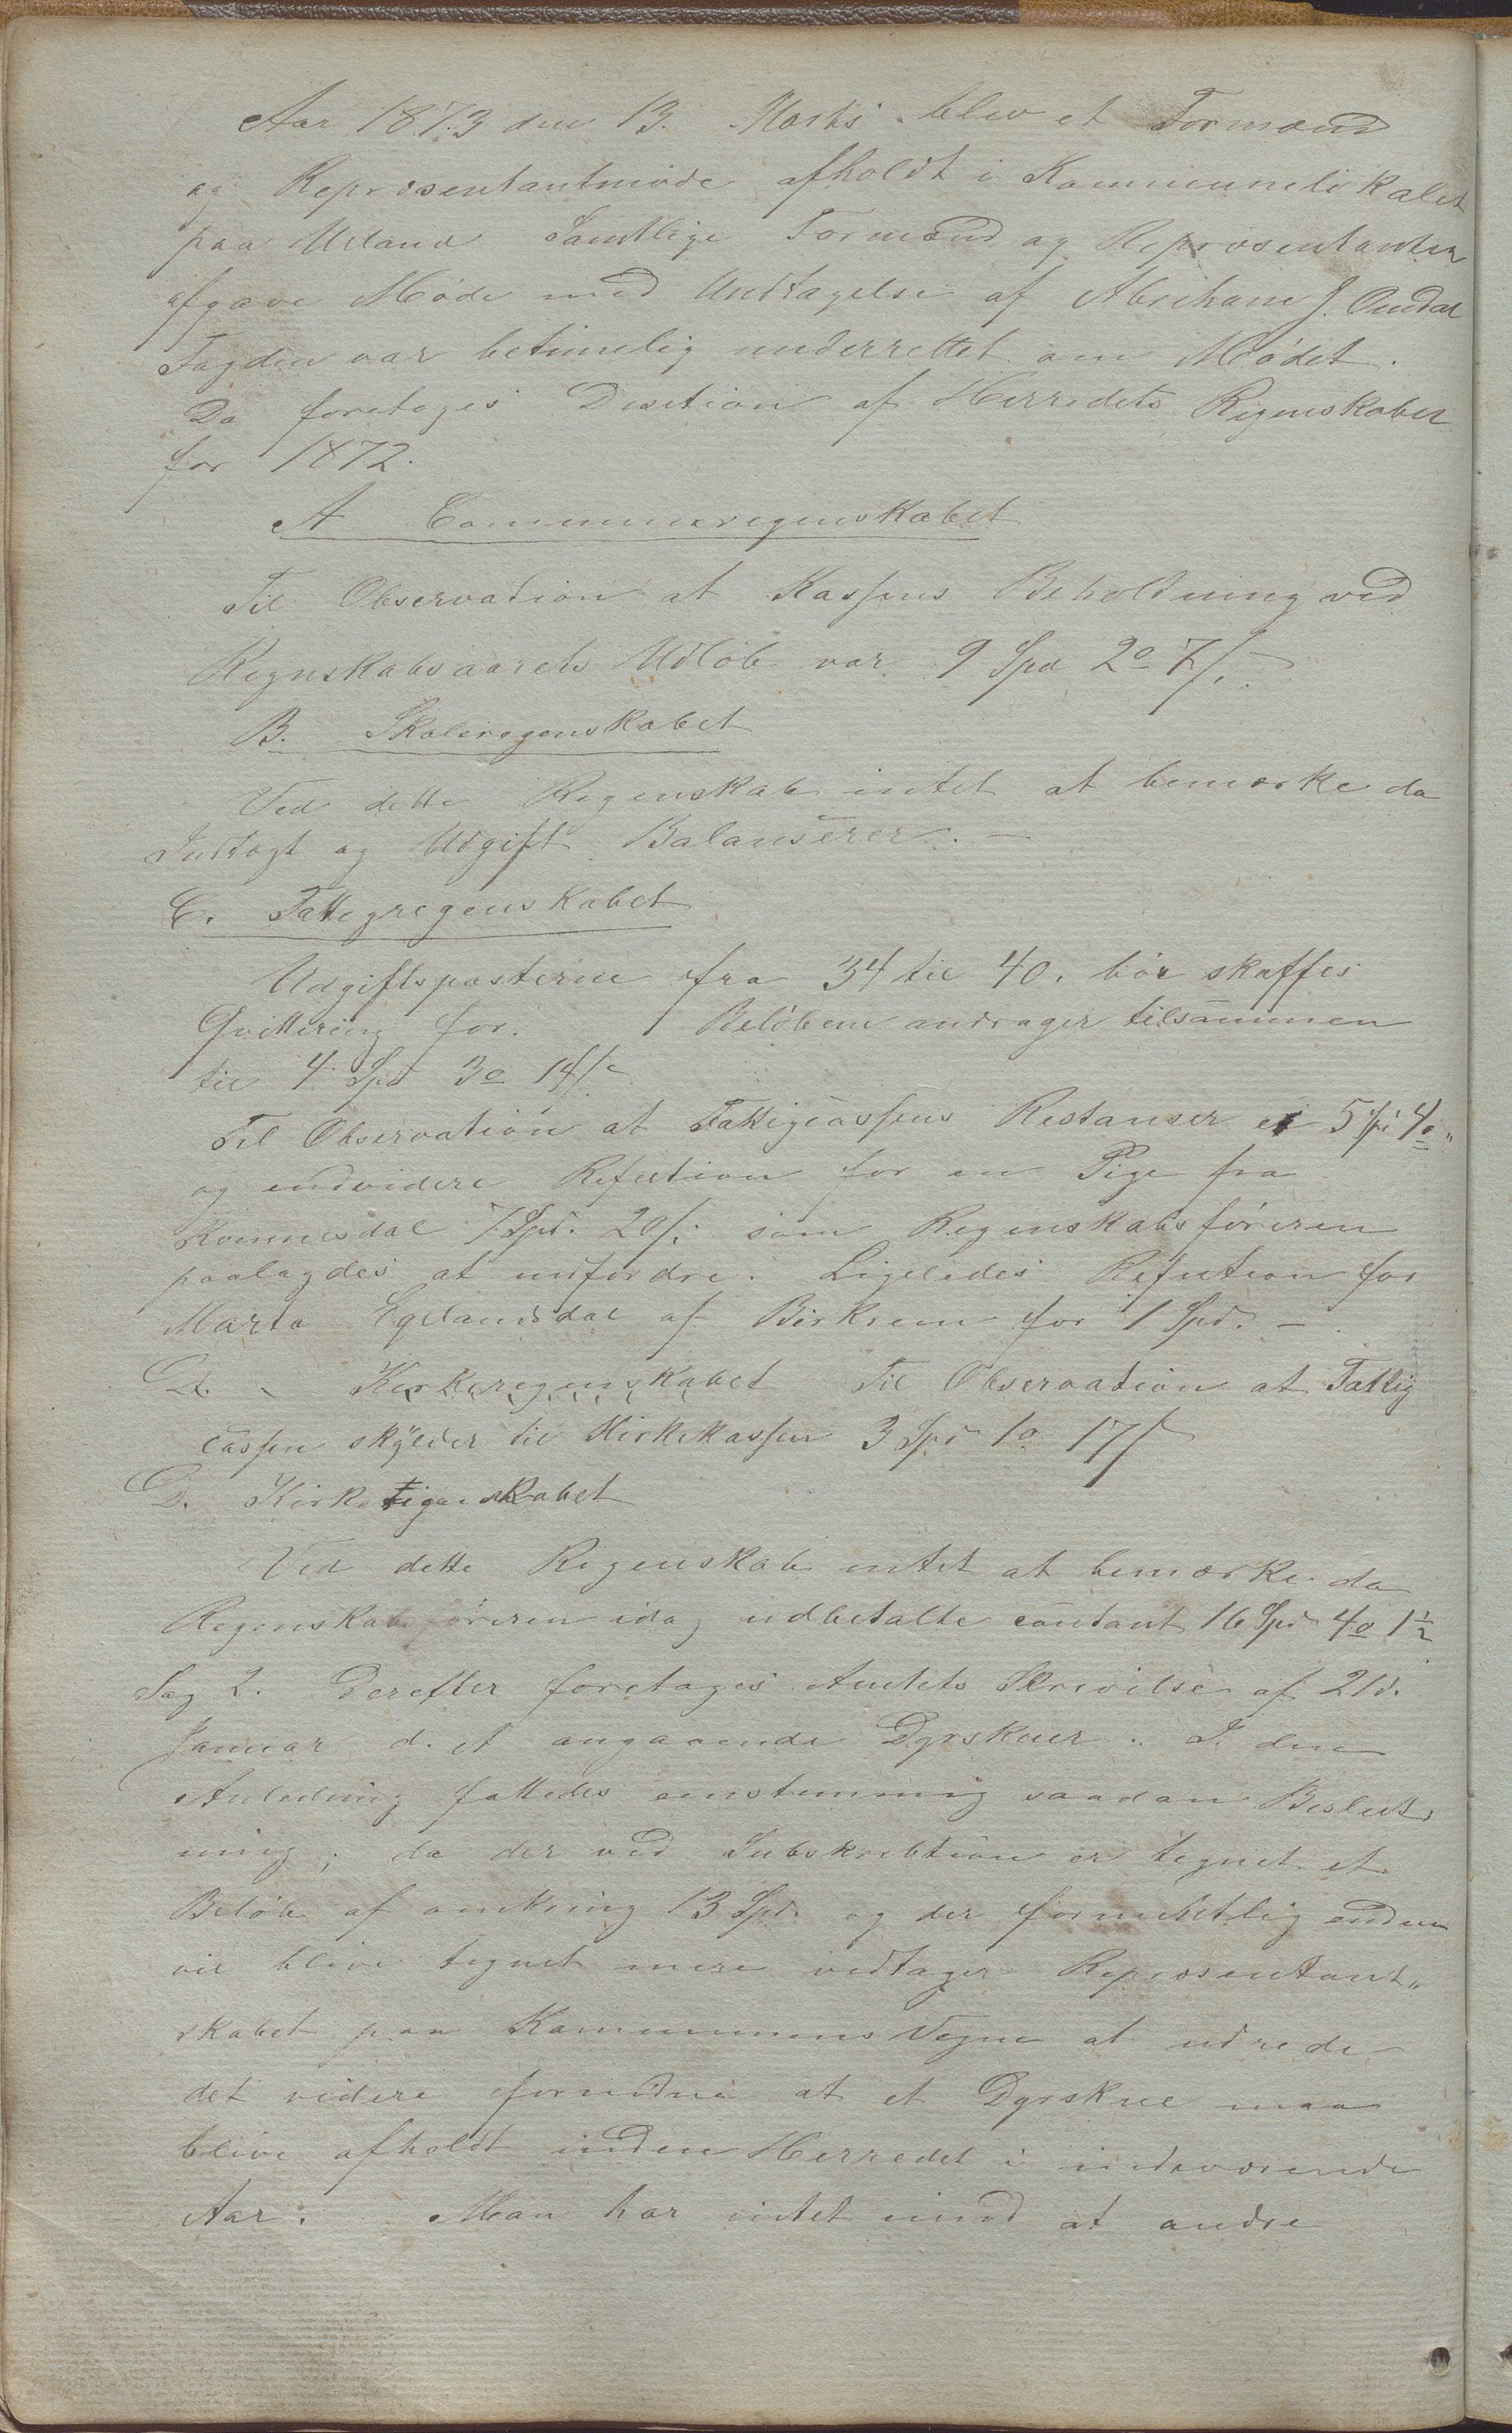 Aar 1873 den 13. Marts blev et Formænd
og Repræsentantmøde afholdt i Kommunelokalet
paa Ueland Samtlige Formænd og Repræsentanter
afgave Møde med Undtagelse af Abraham J. Omdal
Fogden var betimelig underrettet om Mødet.
Da foretoges Desition af Herredets Regenskaber
for 1872.
A Communeregenskabet
Til Observation at Kassens Beholdning ved
Regnskabsaarets Udløb var 9 Spd 2o 7/s.
B. Skoleregenskabet
Ved dette Regenskab intet at bemærke da
Indtægt og Udgift Balanserer. –
C. Fattigregenskabet
Udgiftsposterne fra 34 til 40. bør skaffes
Qvittering for. Beløbene andrager tilsammen
til 4 Spd 3o 14/s
Til Observation at Fattigcassens Restanser er 5 Sp 4o „
og endvidere Refution for en Pige fra
Kommesdal 7 Spd. 20/s som Regenskabsføreren
paalagdes at indfordre. Ligeledes Refution for
Marta Egelandsdal af Birkrem for 1 Spd. –
D. Kirkeregenskabet Til Observation at Fattig
cassen skylder til Kirkekassen 3 Spd 1o 17/s
D. Kirkeregenskabet
Ved dette Regenskab intet at bemærke da
Regenskabsføreren idag udbetalte contant 16 Spd 4o 1½
Sag 2. Derefter foretoges Amtets Skrivelse af 21d.
Januar d. A angaaende Dyrskuer. I den
Anledning fattedes enstemmig saadan Beslut,
ning; da der ved Subskribtion er tegnet et
Beløb af omkring 13 Spd. og der formentlig endnu
vil blive tegnet mere vedtager Repræsentant„
skabet paa Kommunens Vegne at udrede
det videre fornødne at et Dyrskue maa
blive afholdt inden Herredet i indeværende
Aar. Man har intet imod at andre